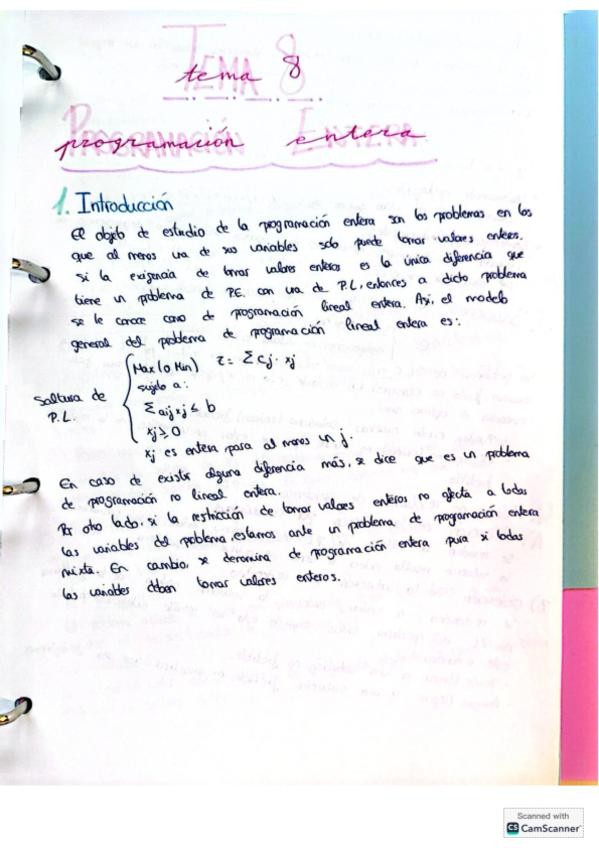 Tema 8
Programación Entera
1. Introducción
El objeto de estudio de la programación entera son los problemas en los
que al menos una de sus variables solo puede tomar valores enteros.
Si la exigencia de tomar valores enteros es la única diferencia que
tiene un problema de P.E. con una de P.L, entonces a dicto problema
se le conoce como de programación lineal entera. Así, el modelo
general del problema de programación lineal entera es:
Max (o Min) z = Σ cj · xj
sujeto a:
Σ aij xj ≤ b
xj ≥ 0
xj es entera para al menos un j.
de
P.L.
En caso de existir alguna diferencia más, se dice que es un problema
de programación no lineal entera.
Por otro lado, si la restricción de tomar valores enteros no afecta a todas
las variables del problema, estamos ante un problema de programación entera
mixta. En cambio, se denomina de programación entera pura si todas
las variables deben tomar valores enteros.
Scanned with
CS CamScanner